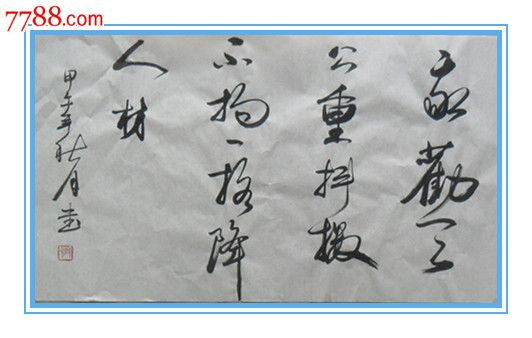 7788.com
我勸天
公重抖擞
不拘一格降
人材
甲午年秋月书